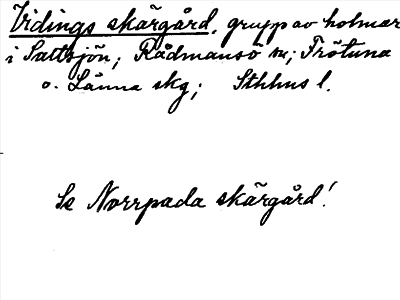 Vidings skärgård, grupp av holmar
i Saltsjön; Rådmansö sn; Frötuna
o. Länna skg; Sthlms l.
Se Norrpada skärgård!